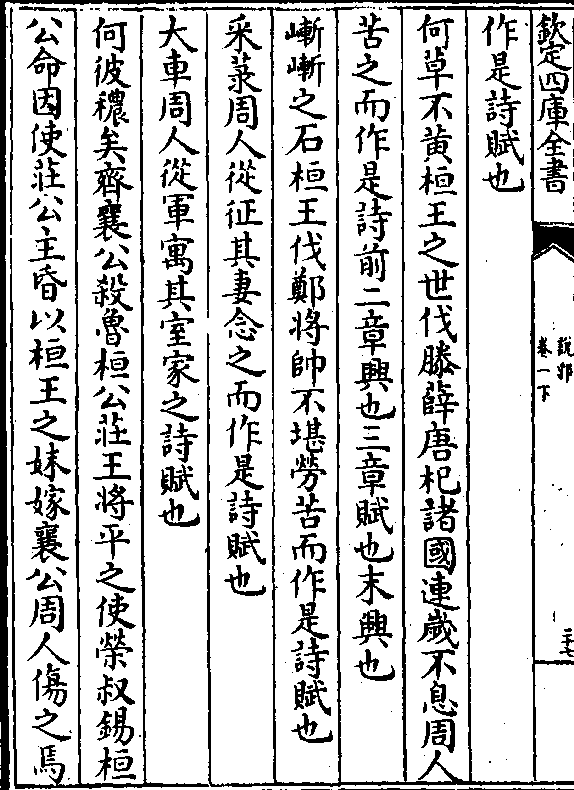 欽定四庫全書
說郛
卷一下
二十七
作是詩賦也
何草不黃桓王之世伐滕薛唐杞諸國連歲不息周人
苦之而作是詩前二章興也三章賦也末興也
嶃嶃之石桓王伐鄭將帥不堪勞苦而作是詩賦也
采菉周人從征其妻念之而作是詩賦也
大車周人從軍寓其室家之詩賦也
何彼穠矣齊襄公殺魯桓公莊王將平之使榮叔錫桓
公命因使莊公主昏以桓王之妹嫁襄公周人傷之焉